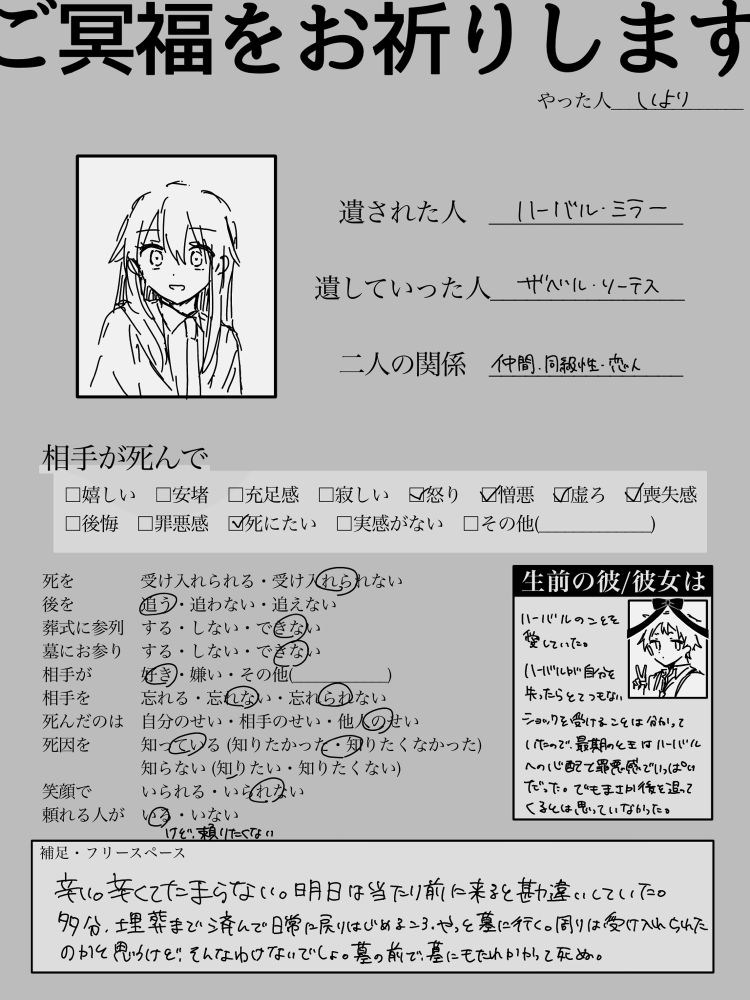 ご冥福をお祈りします
やった人 ししより
遺された人 ハーバル・ミラー
遺していった人 ザベル・ソーテス
二人の関係 仲間・同級性・恋人
相手が死んで
□嬉しい □安堵 □充足感 □寂しい ☑怒り ☑憎悪 ☑虚ろ ☑喪失感
□後悔 □罪悪感 ☑死にたい □実感がない □その他(____________)
死を 受け入れられる・受け入れられない
後を 追う・追わない・追えない
葬式に参列 する・しない・できない
墓にお参り する・しない・できない
相手が 好き・嫌い・その他(____________)
相手を 忘れる・忘れない・忘れられない
死んだのは 自分のせい・相手のせい・他人のせい
死因を 知っている (知りたかった・知りたくなかった)
知らない (知りたい・知りたくない)
笑顔で いられる・いられない
頼れる人が いる・いない
けど、頼りたくない
生前の彼/彼女は
ハーバルのことを
愛していた。
ハーバルが自分を
失ったらとてつもない
ショックを受けることは分かって
いたので、最期のヒトはハーバル
への心配で罪悪感でいっぱい
だった。でもまさか後を追って
くるとは思っていなかった。
補足・フリースペース
辛い。辛くてたまらない。明日は当たり前に来ると勘違いしていた。
多分、埋葬まで済んで日常に戻りはじめるころ、やっと墓に行く。周りは受け入れられた
のかと思うけど、そんなわけないでしょ。墓の前で、墓にもたれかかって死ぬ。